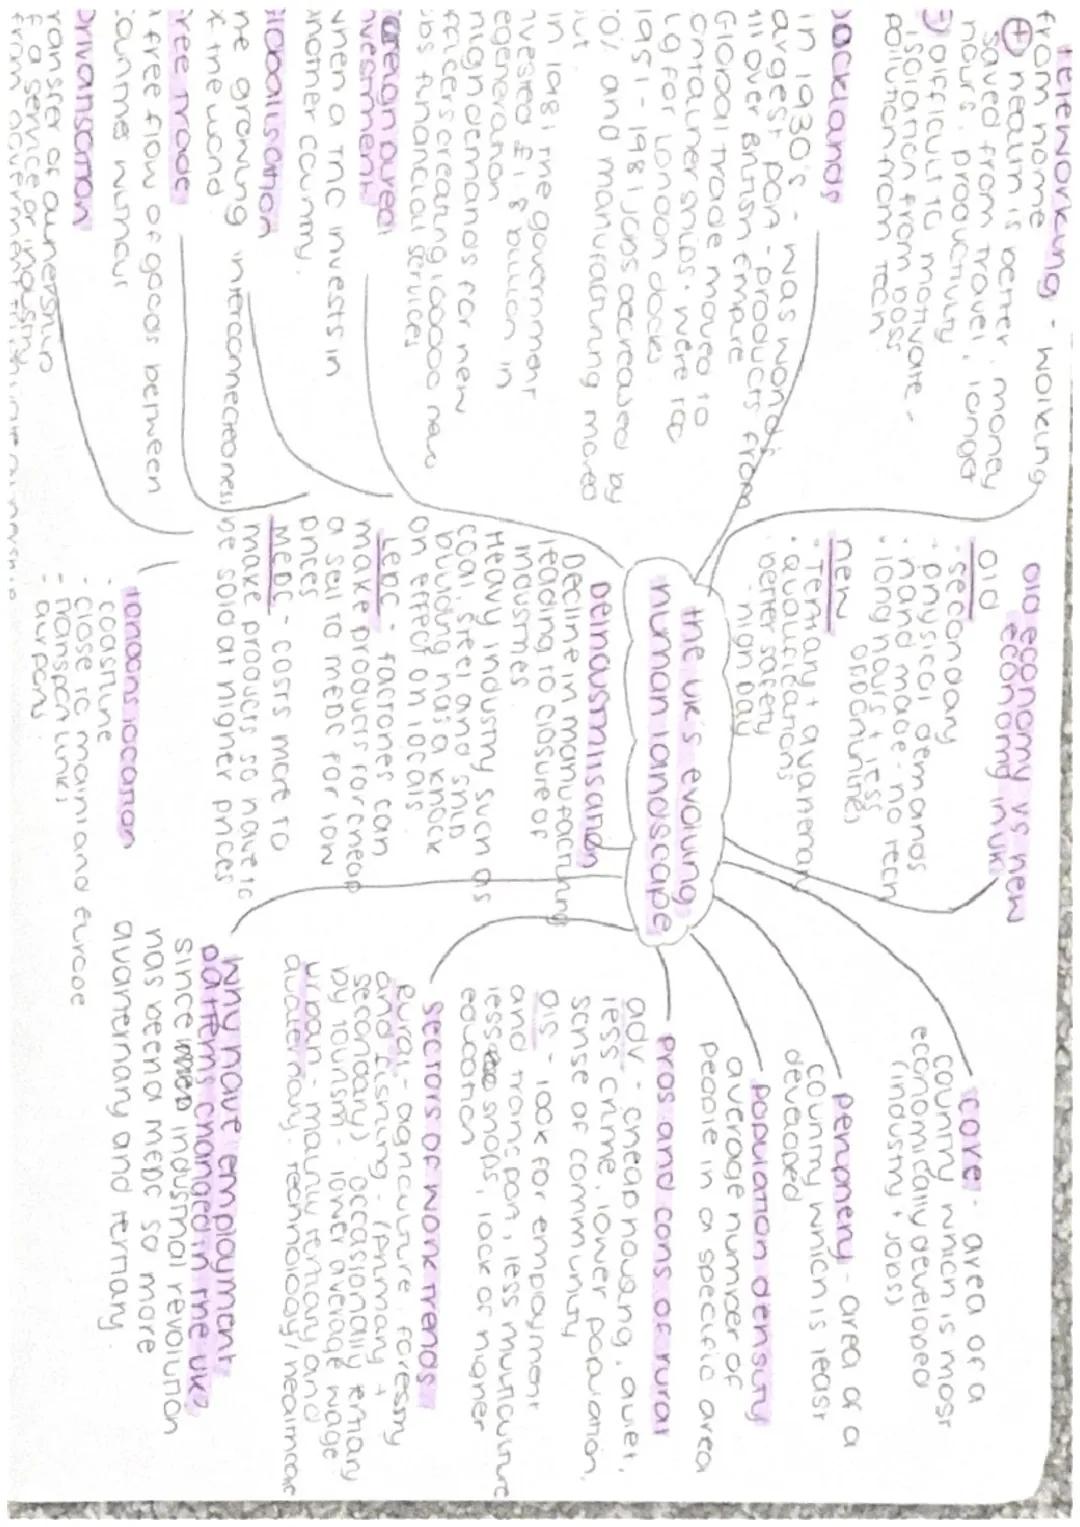 the UK's evolving
human landscape
Teleworking - working
from home
+ health is better, money
saved from travel, longer
hours, productivity
- Difficult to motivate -
isolation from boss
pollution from tech
Docklands
in 1930's - was world's
largest port - products from
all over British Empire
Global trade moved to
container ships. were too
big for London docks
1951 - 1981 jobs decreased by
and manufacturing moved
out
in 1981 the government
invested £1.8 billion in
regeneration
high demands for new
offices creating 100000 new
jobs financial services
Foreign direct
investment
when a TNC invests in
another country.
Globalisation
the growing interconnectedness
of the world
Free trade
free flow of goods between
countries without
Privatisation
transfer of ownership
of a service or industry
from government
Old economy vs new
economy in UK
Old
- secondary
- physical demands
- hand made - no tech
- long hours + less
opportunities
new
- Tertiary + quaternary
- qualifications
- better safety
- high pay
Deindustrilisation
Decline in manufacturing
leading to closure of
industries
Heavy industry such as
coal, steel and ship
building has a knock
on effect on locals
LEDC - factories can
make products for cheap
a sell to MEDC for low
prices
MEDC - costs more to
make products so have to
be sold at higher prices
londons location
- coastline
- close to mainland Europe
- transport links
- airports
core - area of a
country which is most
economically developed
(industry + jobs)
periphery - area of a
country which is least
developed
population density
average number of
people in a specific area
pros and cons of rural
adv - cheap housing, quiet,
less crime, lower population,
sense of community
dis - look for employment
and transport, less multiculture
less shops, lack of higher
education
sectors of work trends
Rural - agriculture, forestry
and fishing - (primary +
secondary) occasionally tertiary
by tourism - lower average wage
urban - mainly tertiary and
quaternary. technology / healthcare
Why have employment
patterns changed in the UK?
since industrial revolution
has been a MEDC so more
quaternary and tertiary